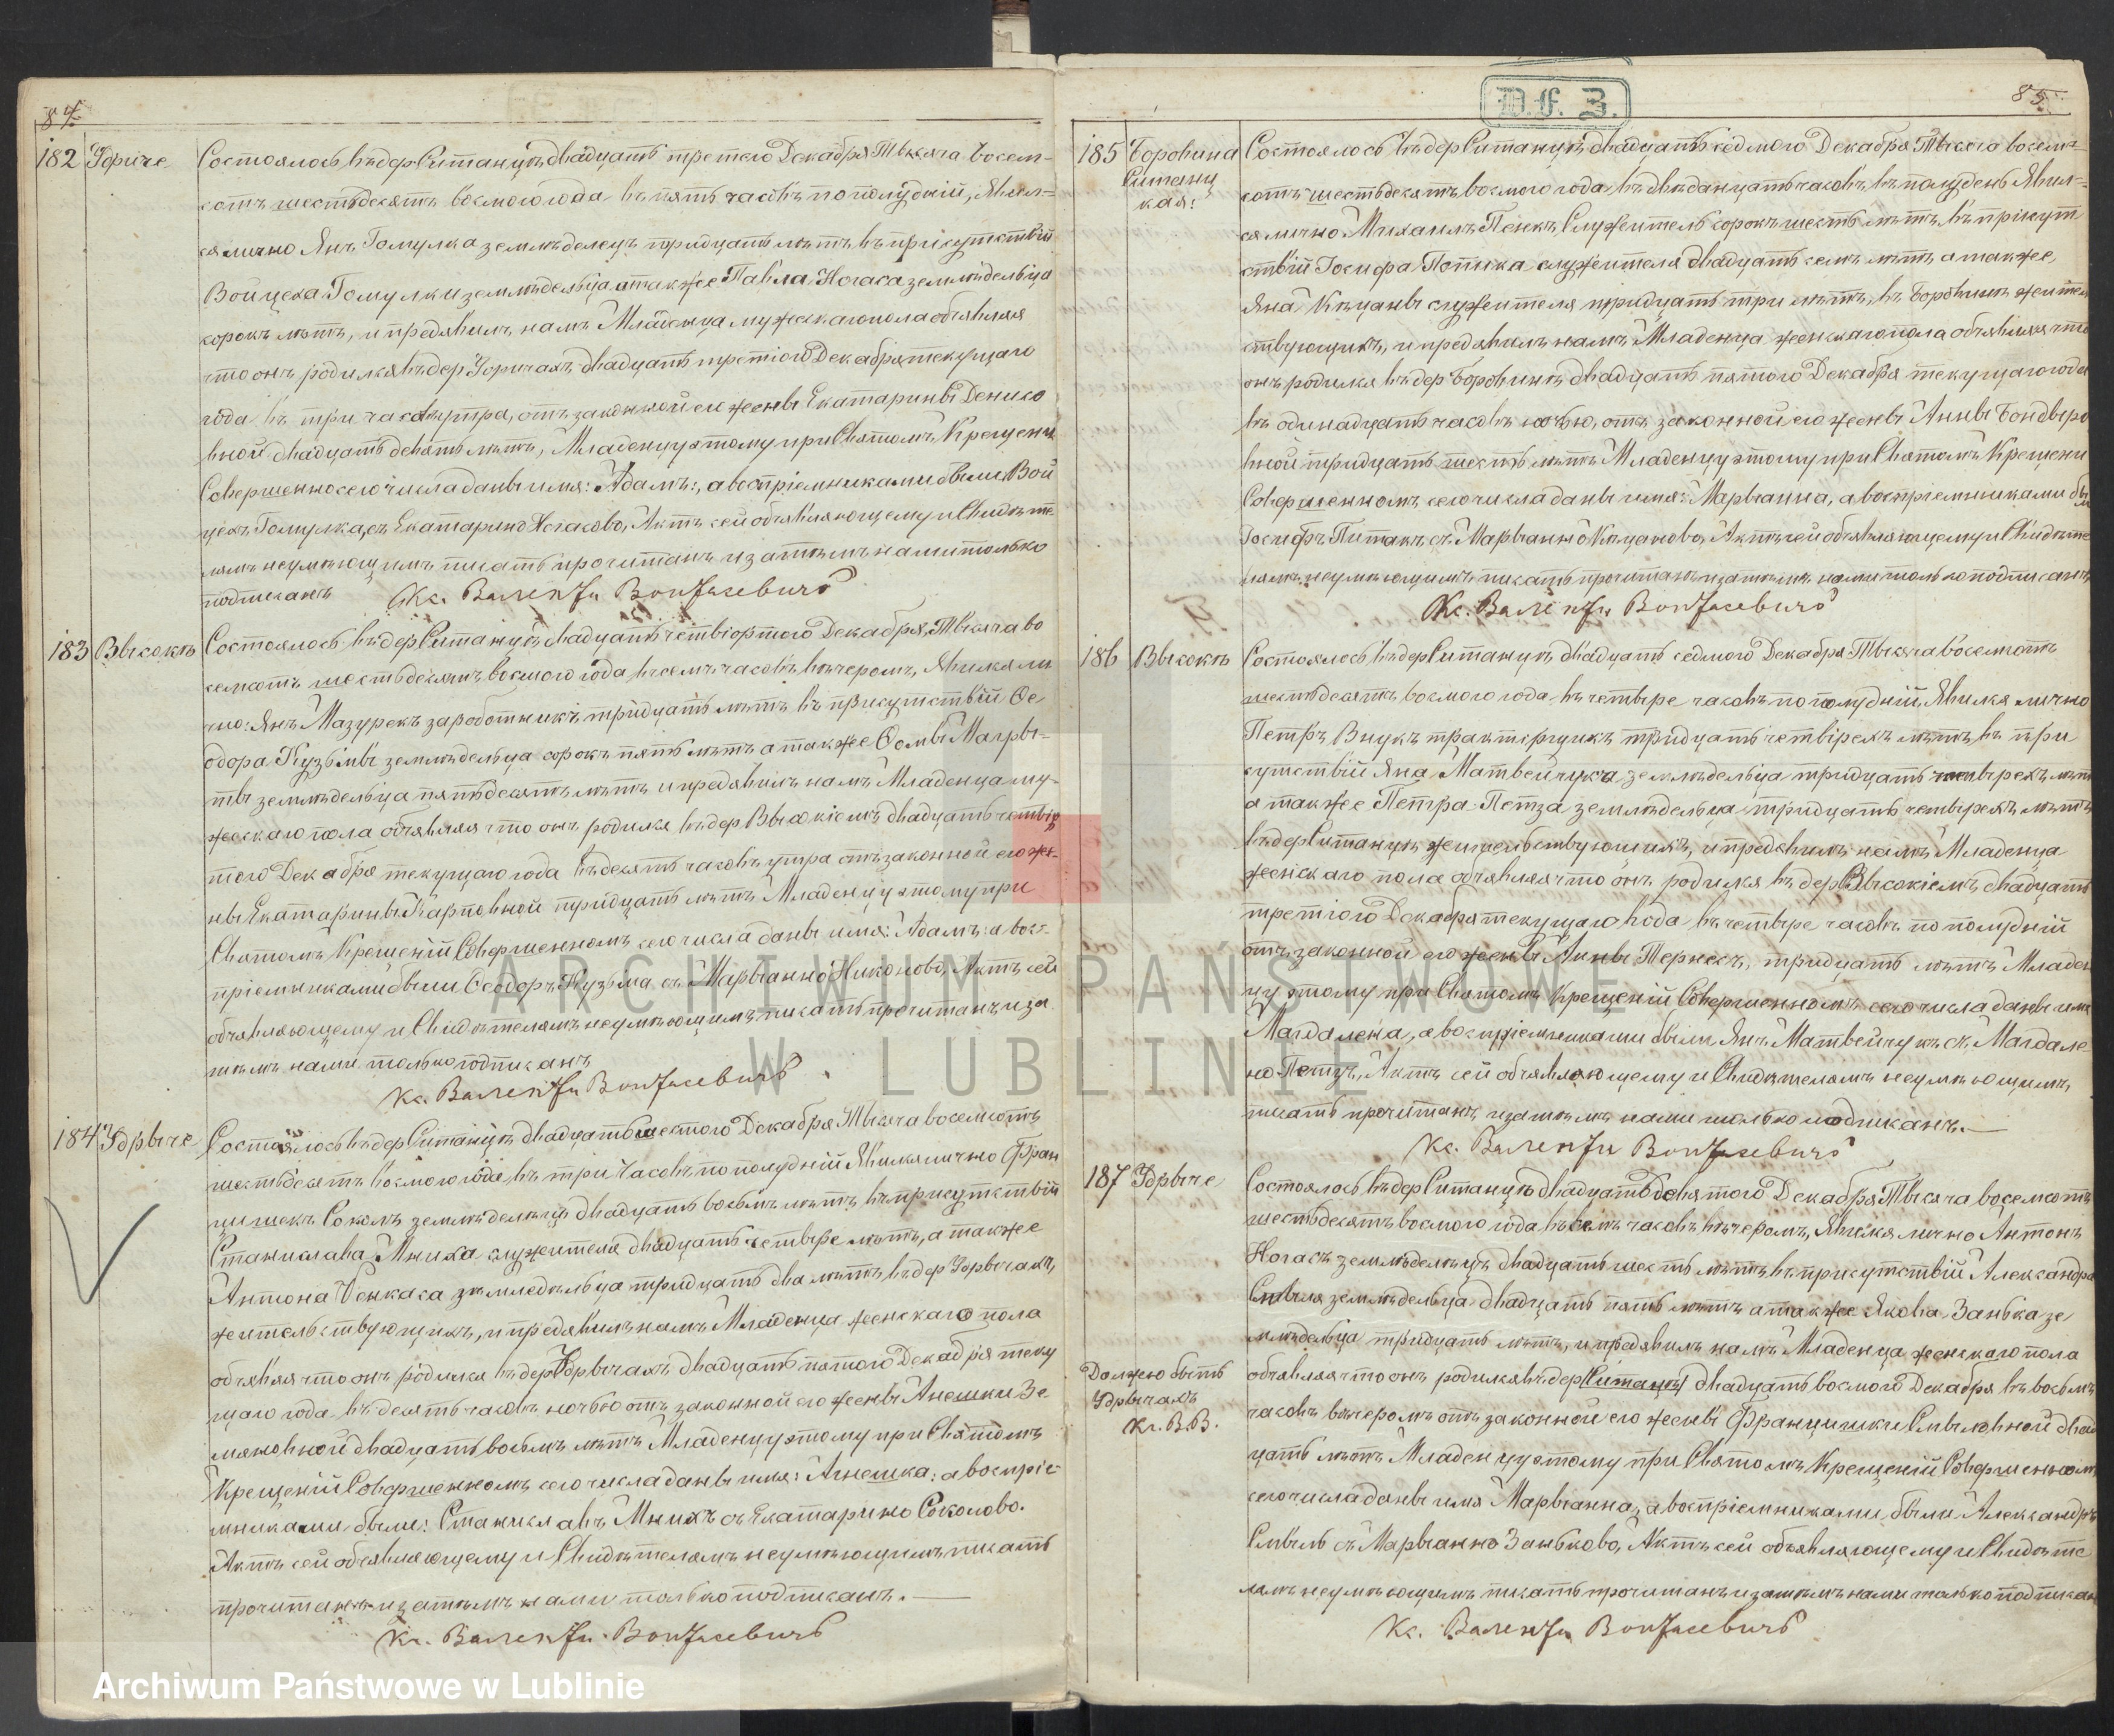 84.
182 Удриче Состоялось въ дер Ситанцѣ двадцать третего Декабря Тысяча восем-
сотъ шестьдесятъ восмого года въ пять часовъ по полудній, Явил-
ся лично Янъ Гомулка земледелецъ тридцать лѣтъ въ присутствій
Войцеха Гомулки земледельца а также Павла Ногаса земледельца
сорокъ лѣтъ, и предявилъ намъ Младенца мужескаго пола объявляя
что онъ родился въ дер Удричахъ двадцать третіого Декабря текущаго
года въ три часа утра, отъ законной его жены Екатерины
двадцать девять лѣтъ, Младенцу этому при Святомъ Крещени
Совершенно сего числа даны имя: Адамъ:, а воспріемниками были Вой
цехъ Гомулка, съ Екатарино Ногасово, Актъ сей объявляющему и Свидѣте
лямъ неумѣющимъ писать прочитанъ и затѣмъ нами только
подписанъ Кс. Валенты Вонтасевичъ
183 Высокѣ Состоялось въ дер Ситанцѣ двадцать четвіортого Декабря Тысяча во
семсотъ шестьдесятъ восмого года в семъ часовъ вѣчеромъ, Явился ли
чно: Янъ Мазурекъ заработникъ тридцать лѣтъ въ присутствій Ѳе
одора Кузьмы земледельца сорокъ пять лѣтъ а также Ѳомы Магры-
ты земледельца пятьдесятъ лѣтъ и предявилъ намъ Младенца му-
жескаго пола объявляя что онъ родился въ дер Высокіемъ двадцать четвіор
того Декабря текущаго года въ десять часовъ утра отъ законной его же-
ны Екатарины Карповной тридцать лѣтъ Младенцу этому при
Святомъ Крещеній Совершенномъ сего числа даны имя: Адамъ: а вос-
пріемниками были Ѳеодоръ Кузьма съ Марыанно Никоново, Актъ сей
объявляющему и Свидѣтелямъ неумѣющимъ писать прочитанъ и за
тѣмъ нами только подписанъ
Кс. Валенты Вонтасевичъ
184 Удрыче Состоялось въ дер Ситанцѣ двадцать шестого Декабря Тысяча восемсотъ
шестьдесятъ восмого года, въ три часовъ по полудній Явился лично Фран
цишекъ Соколъ земледелецъ двадцать восьмъ лѣтъ въ присутствій
Станислава Мниха служителя двадцать четыре лѣтъ, а также
Антона земледельца тридцать два лѣтъ въ дер Удрычахъ,
жительствующихъ, и предявилъ намъ Младенца женскаго пола
объявляя что онъ родился въ дер Удрычахъ двадцать пятого Декабря теку
щаго года въ десять часовъ ночью отъ законной его жены Анешки Зе
мяновной двадцать восьмъ лѣтъ Младенцу этому при Святомъ
Крещеній Совершенномъ сего числа даны имя: Агнешка: а воспріе-
мниками были: Станиславъ Мнихъ съ Екатарино Соколово.
Актъ сей объявляющему и Свидѣтелямъ неумѣющимъ писать
прочитанъ и затѣмъ нами только подписанъ.
Кс. Валенты Вонтасевичъ
D.f. 3.
85.
185 Боровина Состоялось въ дер Ситанцѣ двадцать седмого Декабря Тысяча восем-
Ситанц сотъ шестьдесятъ восмого года въ двѣнадцать часовъ въ полудень Явил-
кая: ся лично Михаилъ Пенкъ Служитель сорокъ шесть лѣтъ, въ присут
ствій Іосифа служителя двадцать семъ лѣтъ а также,
Яна служителя тридцать три лѣтъ, въ Боровинѣ жител
ствующихъ, и предявилъ намъ Младенца женскаго пола объявляя что
онъ родился въ дер Боровинѣ двадцать пятого Декабря текущаго года
въ одинадцать часовъ ночью, отъ законной его жены Анны Бондыро
вной тридцать шесть лѣтъ Младенцу этому при Святомъ Крещени
Совершенномъ сего числа даны имя: Марыанна, а воспріемниками бы
Іосифъ съ Марыанно Актъ сей объявляющему и Свидѣте
лямъ неумѣющимъ писать прочитанъ и затѣмъ нами только подписанъ
Кс. Валенты Вонтасевичъ
186 Высокѣ Состоялось въ дер Ситанцѣ двадцать седмого Декабря Тысяча восемсотъ
шестьдесятъ восмого года въ четыре часовъ по полудній, Явился лично
Петръ Внукъ тридцать четвірехъ лѣтъ, въ при
сутствій Яна Матвейчука земледельца тридцать четырехъ лѣтъ
а также Петра Петза земледельца тридцать четырехъ лѣтъ
въ дер Ситанцѣ жительствующихъ, и предявилъ намъ Младенца
женскаго пола объявляя что онъ родился въ дер Высокіемъ двадцать
третіого Декабря текущаго года въ четыре часовъ по полудній
отъ законной его жены Анны Тернесъ, тридцать лѣтъ Младен
цу этому при Святомъ Крещеній Совершенномъ сего числа даны имя
Магдалена, а воспріемниками были Янъ Матвейчукъ съ Магдале
но Петзъ, Актъ сей объявляющему и Свидѣтелямъ неумѣющимъ,
писать прочитанъ и затѣмъ нами только подписанъ.
Кс. Валенты Вонтасевичъ
187 Удрыче Состоялось въ дер Ситанцѣ двадцать девятого Декабря Тысяча восемсотъ
шестьдесятъ восмого года въ семъ часовъ вѣчеромъ, Явился лично Антонъ
Ногасъ земледелецъ двадцать шесть лѣтъ, въ присутствій Александра
Смыля земледельца двадцать пять лѣтъ а также Якова Занька зе
мледельца тридцать лѣтъ, и предявилъ намъ Младенца женскаго пола
Должно быть объявляя что онъ родился въ дер (Ситанцѣ) двадцать восмого Декабря въ восьмъ
Удрычахъ часовъ вѣчеромъ отъ законной его жены Францишки Смыловной два
Кс. В.В. цать лѣтъ Младенцу этому при Святомъ Крещеній Совершенномъ
сего числа даны имя Марыанна, а воспріемниками были Александръ
Смыль съ Марыанно Заньково, Актъ сей объявляющему и Свидѣте
лямъ неумѣющимъ писать прочитанъ и затѣмъ нами только подписанъ
Кс. Валенты Вонтасевичъ
ARCHIWUM PAŃSTWOWE
W LUBLINIE
Archiwum Państwowe w Lublinie